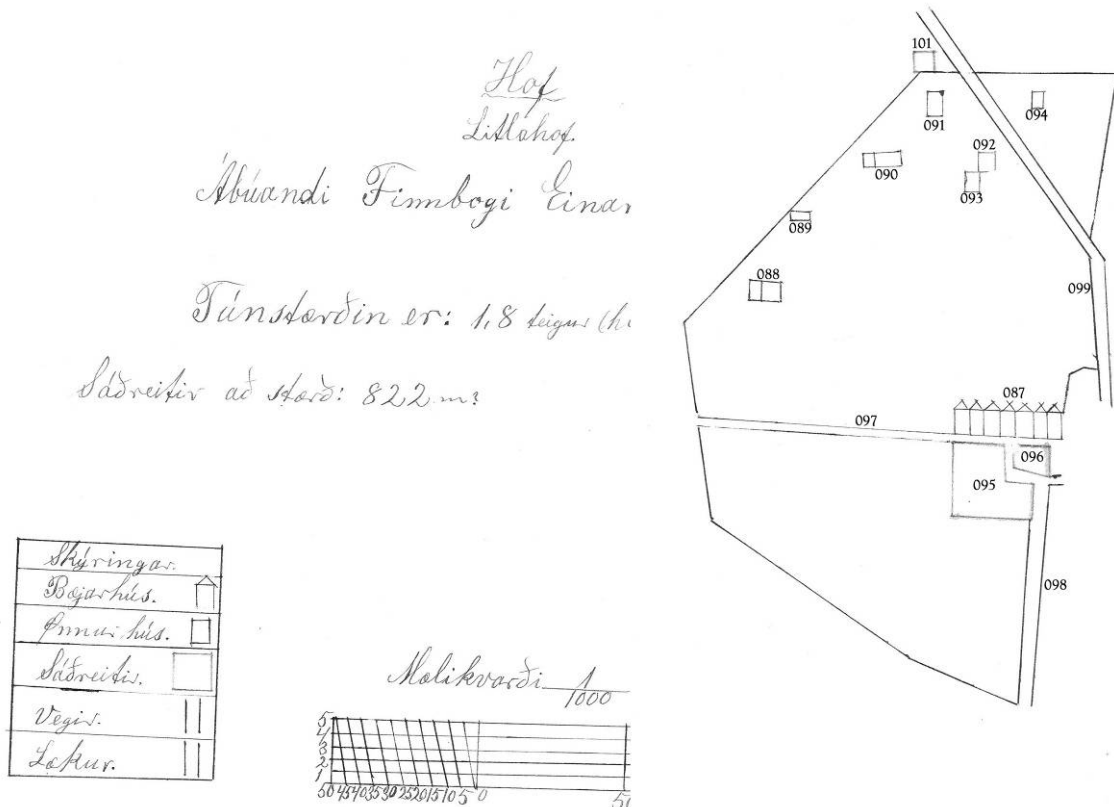 Hof
Litlahof.
Ábúandi Finnbogi Einar
Túnstærðin er: 1,8 teigur (h
Sáðreitir að stærð: 822 m²
Skýringar.
Bæjarhús.
Önnur hús.
Sáðreitir.
Vegir.
Lækur.
Mælikvarði 1/1000
5
4
3
2
1
50 45 40 35 30 25 20 15 10 5 0
101
091
094
092
090
093
089
088
099
087
097
096
095
098